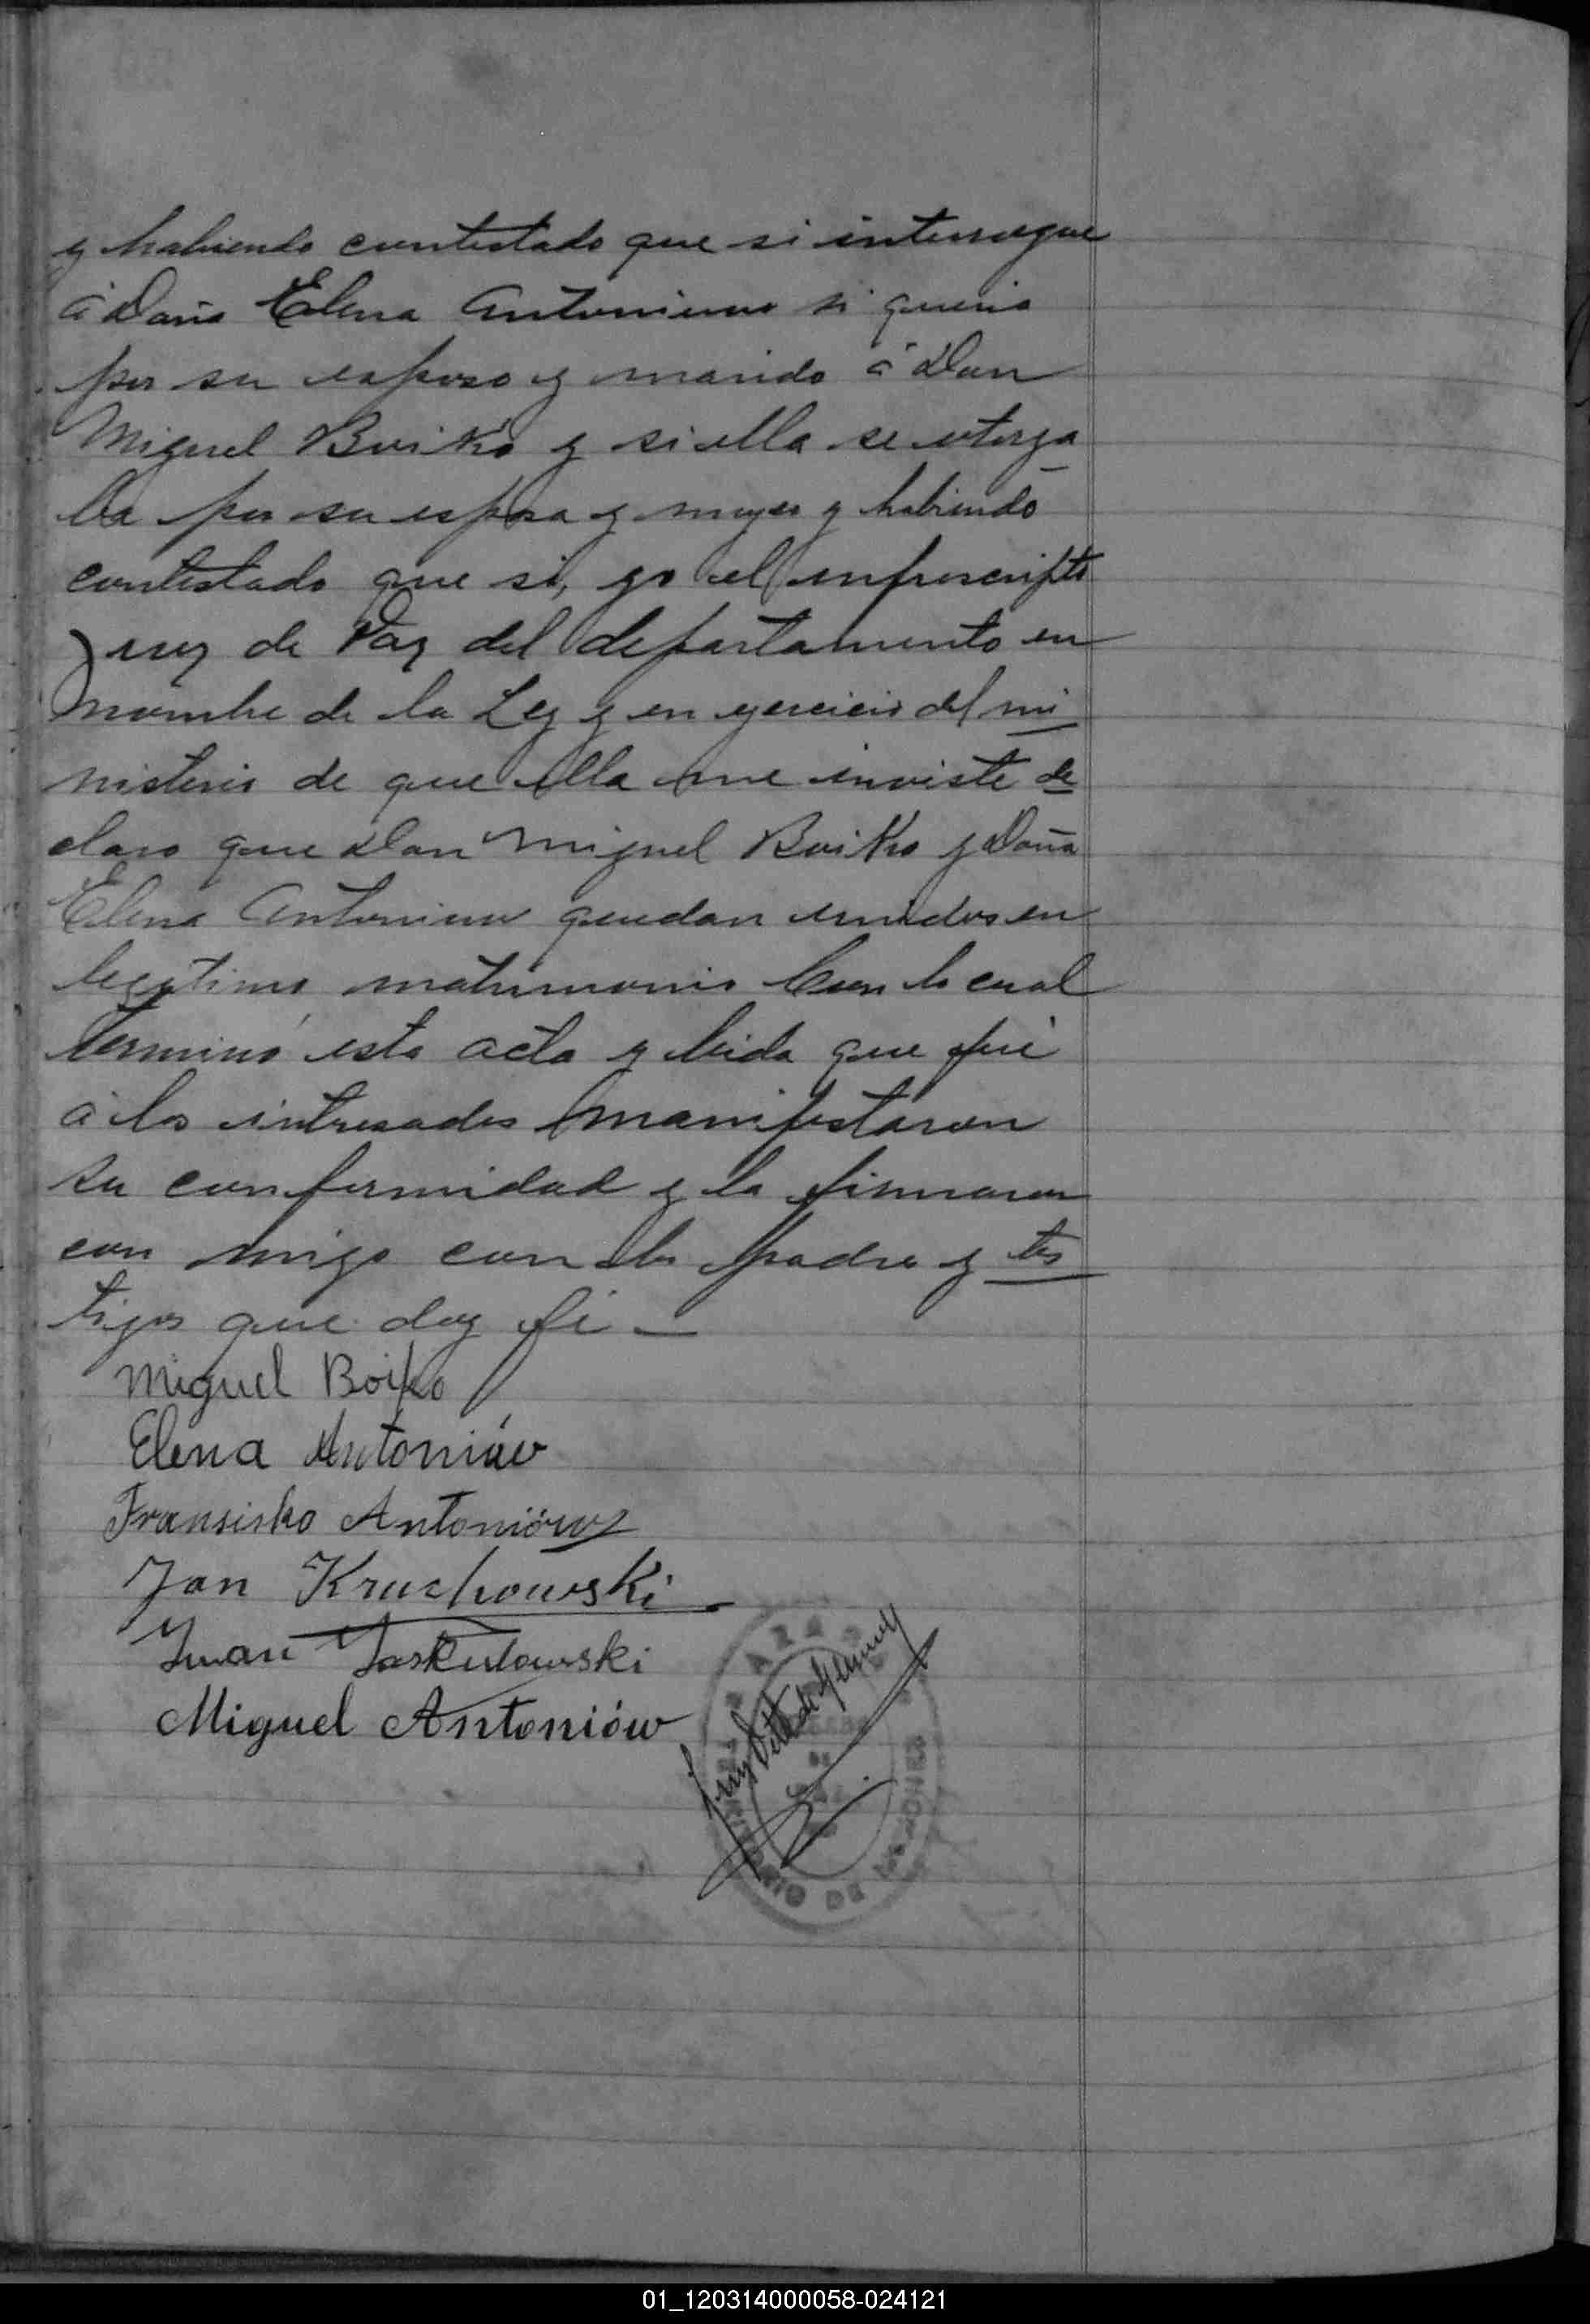 y habiendo contestado que si interrogue
á Doña Elena Antoniow si queria
por su esposo y marido á Don
Miguel Boiko y si ella se otorga
ba por su esposa y mujer y habiendo
contestado que si, yo el infrascripto
Juez de Paz del departamento en
nombre de la Ley y en ejercicio del mi
nisterio de que ella me inviste de
claro que Don Miguel Boiko y Doña
Elena Antoniow quedan unidos en
legitimo matrimonio Con lo cual
terminó esta acta y leida que fué
á los intresados manifestaron
su conformidad y la firmaron
con migo con los padre y tes
tigos que doy fé —
Miguel Boiko
Elena Antoniów
Fransisko Antoniów
Jan Kruchowski
Iwan Jaskulowski
Miguel Antoniów
DE MISIONES
01_120314000058-024121